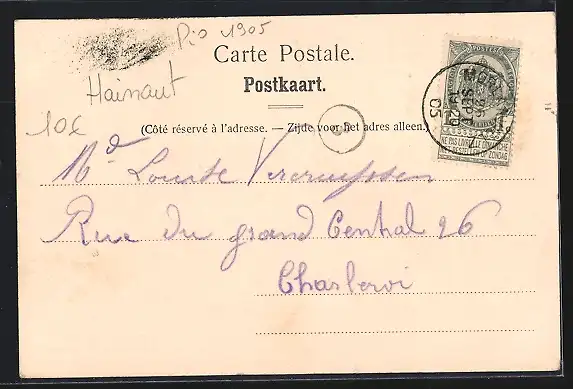 Pio 1905
Carte Postale.
Postkaart.
Hainaut
10€
(Côté réservé à l'adresse. — Zijde voor het adres alleen.)
POSTES
NE PAS LIVRER LE DIMANCHE
NIET BESTELLEN OP ZONDAG
05
Md Louise Vercruyssen
Rue du grand Central 26
Charleroi